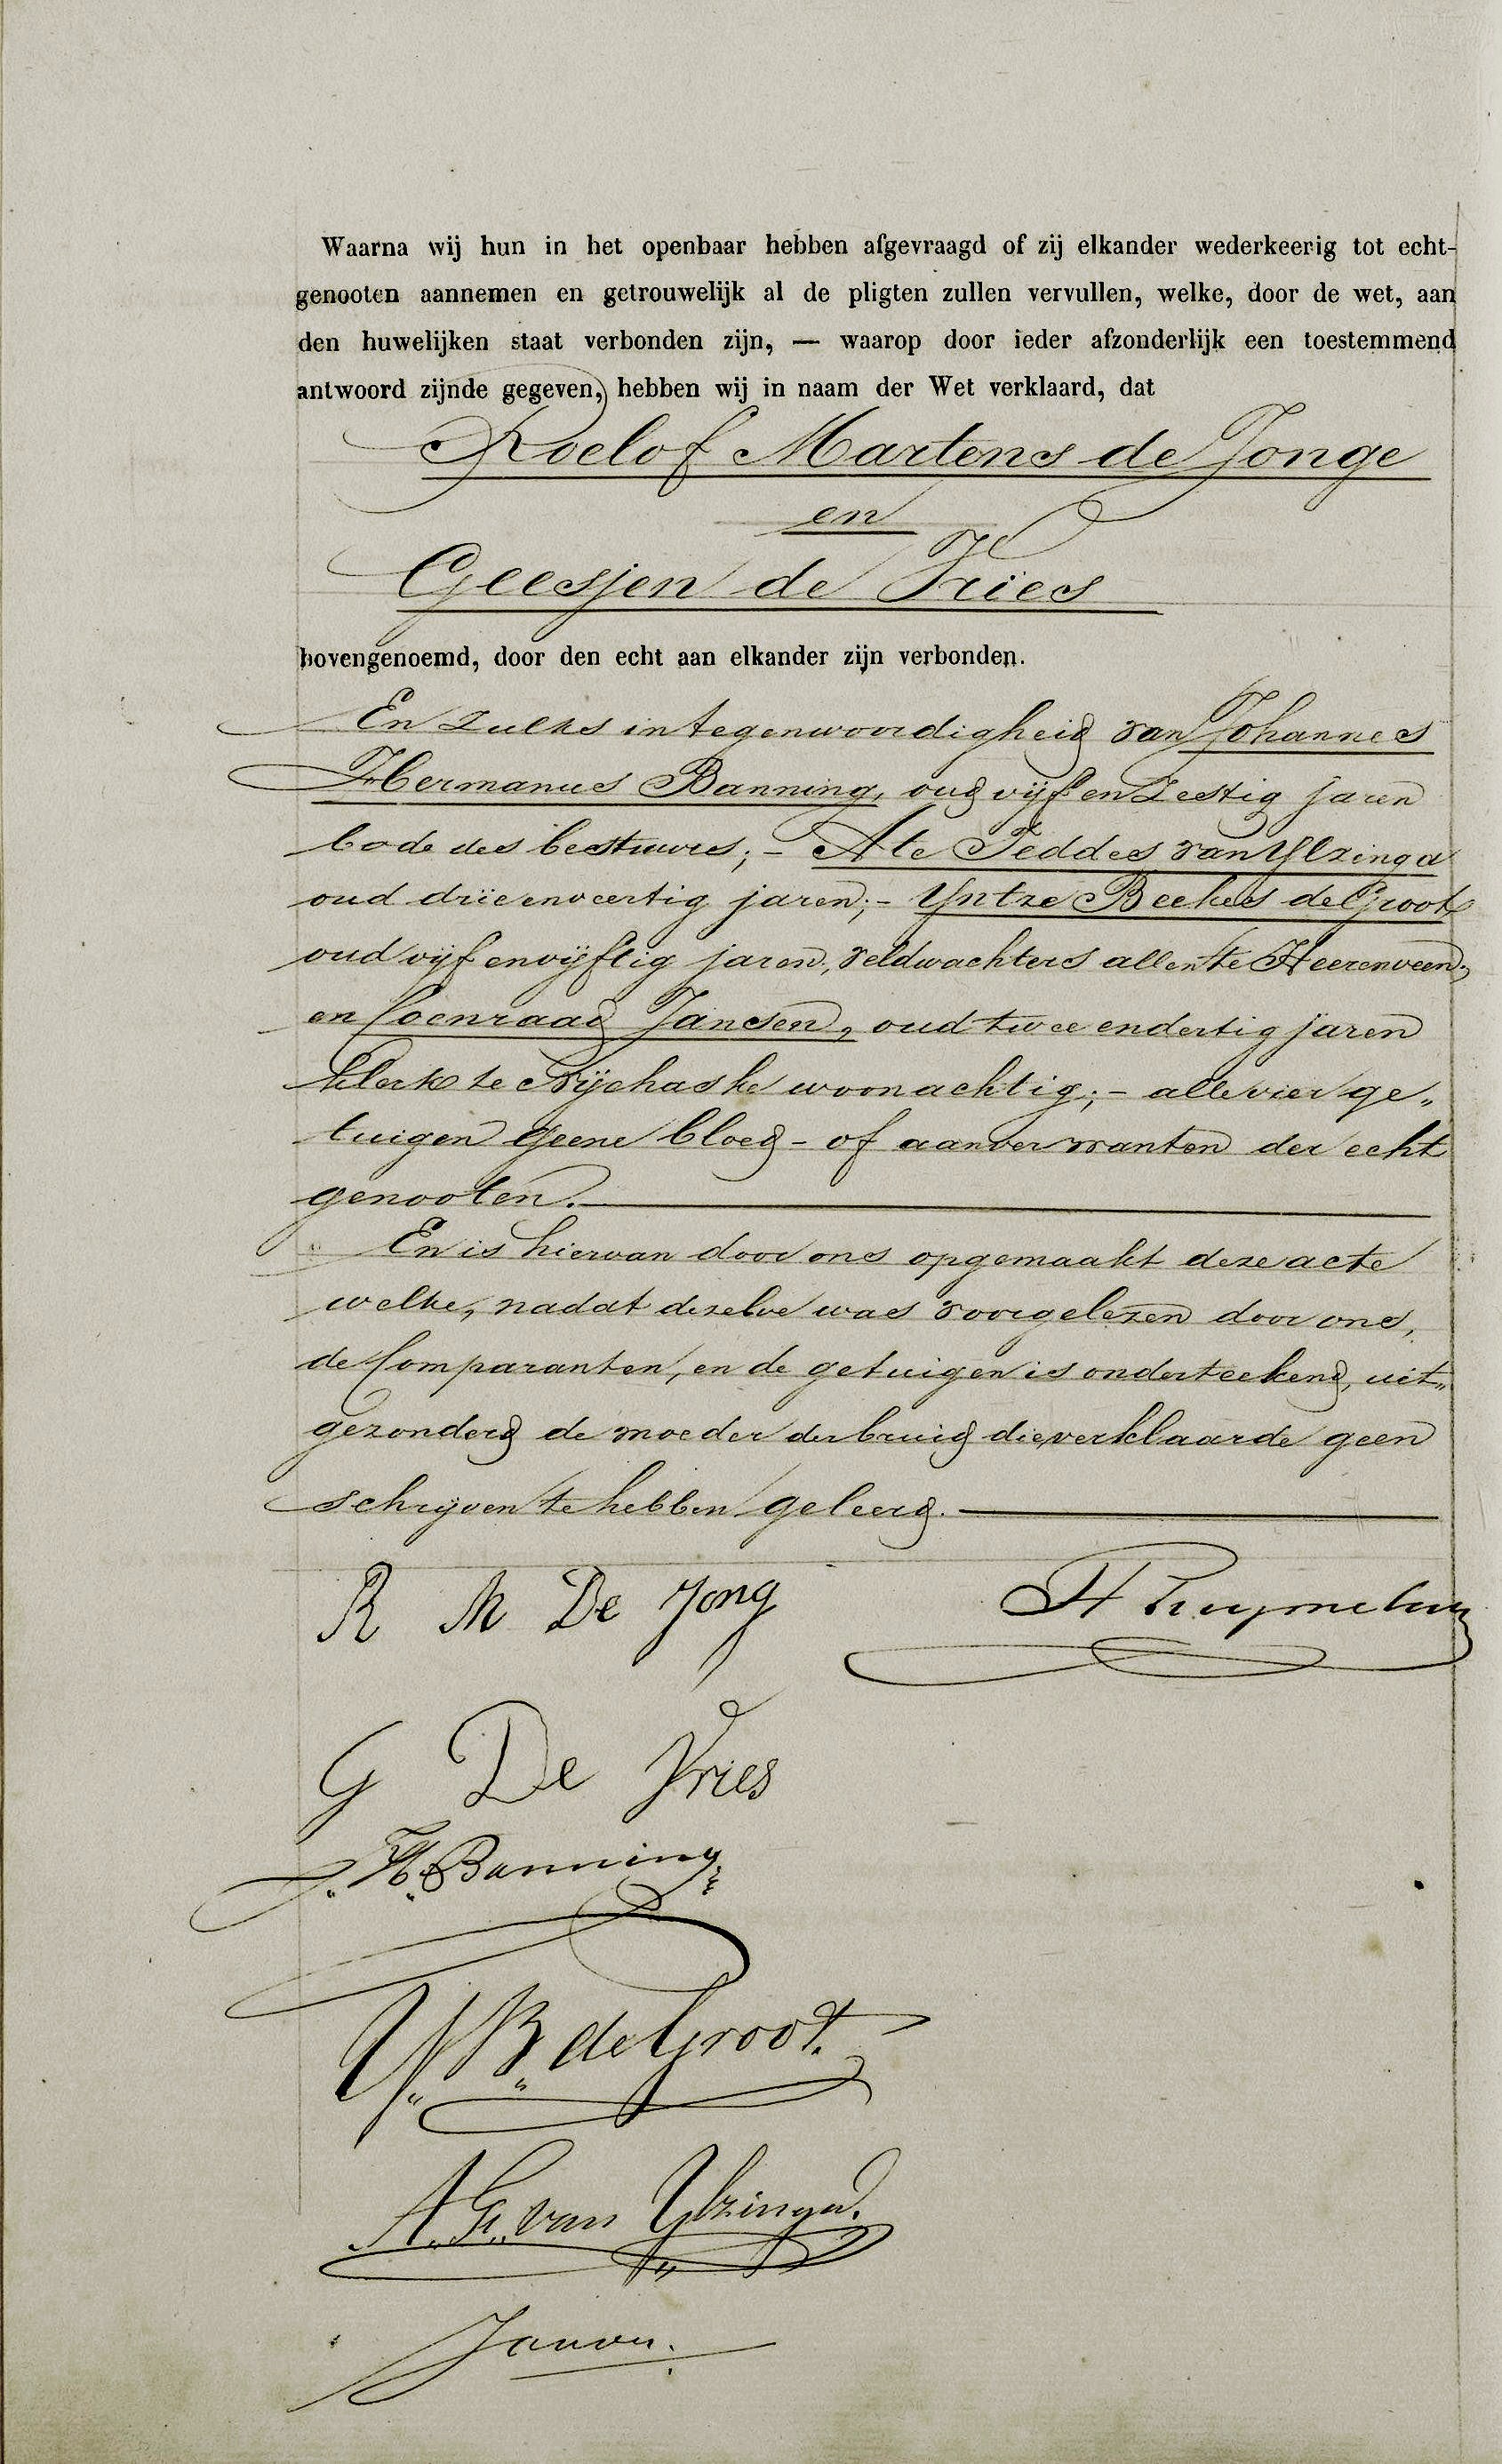 Waarna wij hun in het openbaar hebben afgevraagd of zij elkander wederkeerig tot echt-
genooten aannemen en getrouwelijk al de pligten zullen vervullen, welke, door de wet, aan
den huwelijken staat verbonden zijn, — waarop door ieder afzonderlijk een toestemmend
antwoord zijnde gegeven, hebben wij in naam der Wet verklaard, dat
Roelof Martens de Jonge
en
Geesjen de Vries
bovengenoemd, door den echt aan elkander zijn verbonden.
En zulks in tegenwoordigheid van Johannes
Hermanus Banning, oud vijf en zestig jaren
bode des bestuurs; - Ate Feddes van Ylzinga
oud drieenveertig jaren; - Yntze Beekes de Groot
oud vijfenvijftig jaren, veldwachters allen te Heerenveen;
en Coenraad Jansen, oud twee endertig jaren
klerk te Nijehaske woonachtig; - alle vier ge„
tuigen geene bloed- of aanverwanten der echt
genooten.
En is hiervan door ons opgemaakt deze acte
welke, nadat dezelve was voorgelezen door ons,
de Comparanten, en de getuigen is onderteekend, uit„
gezonderd de moeder der bruid die verklaarde geen
schrijven te hebben geleerd.
R M De Jong
G De Vries
J. H. Banning
Y. B. de Groot.
A. F. van Ylzinga.
Jansen.